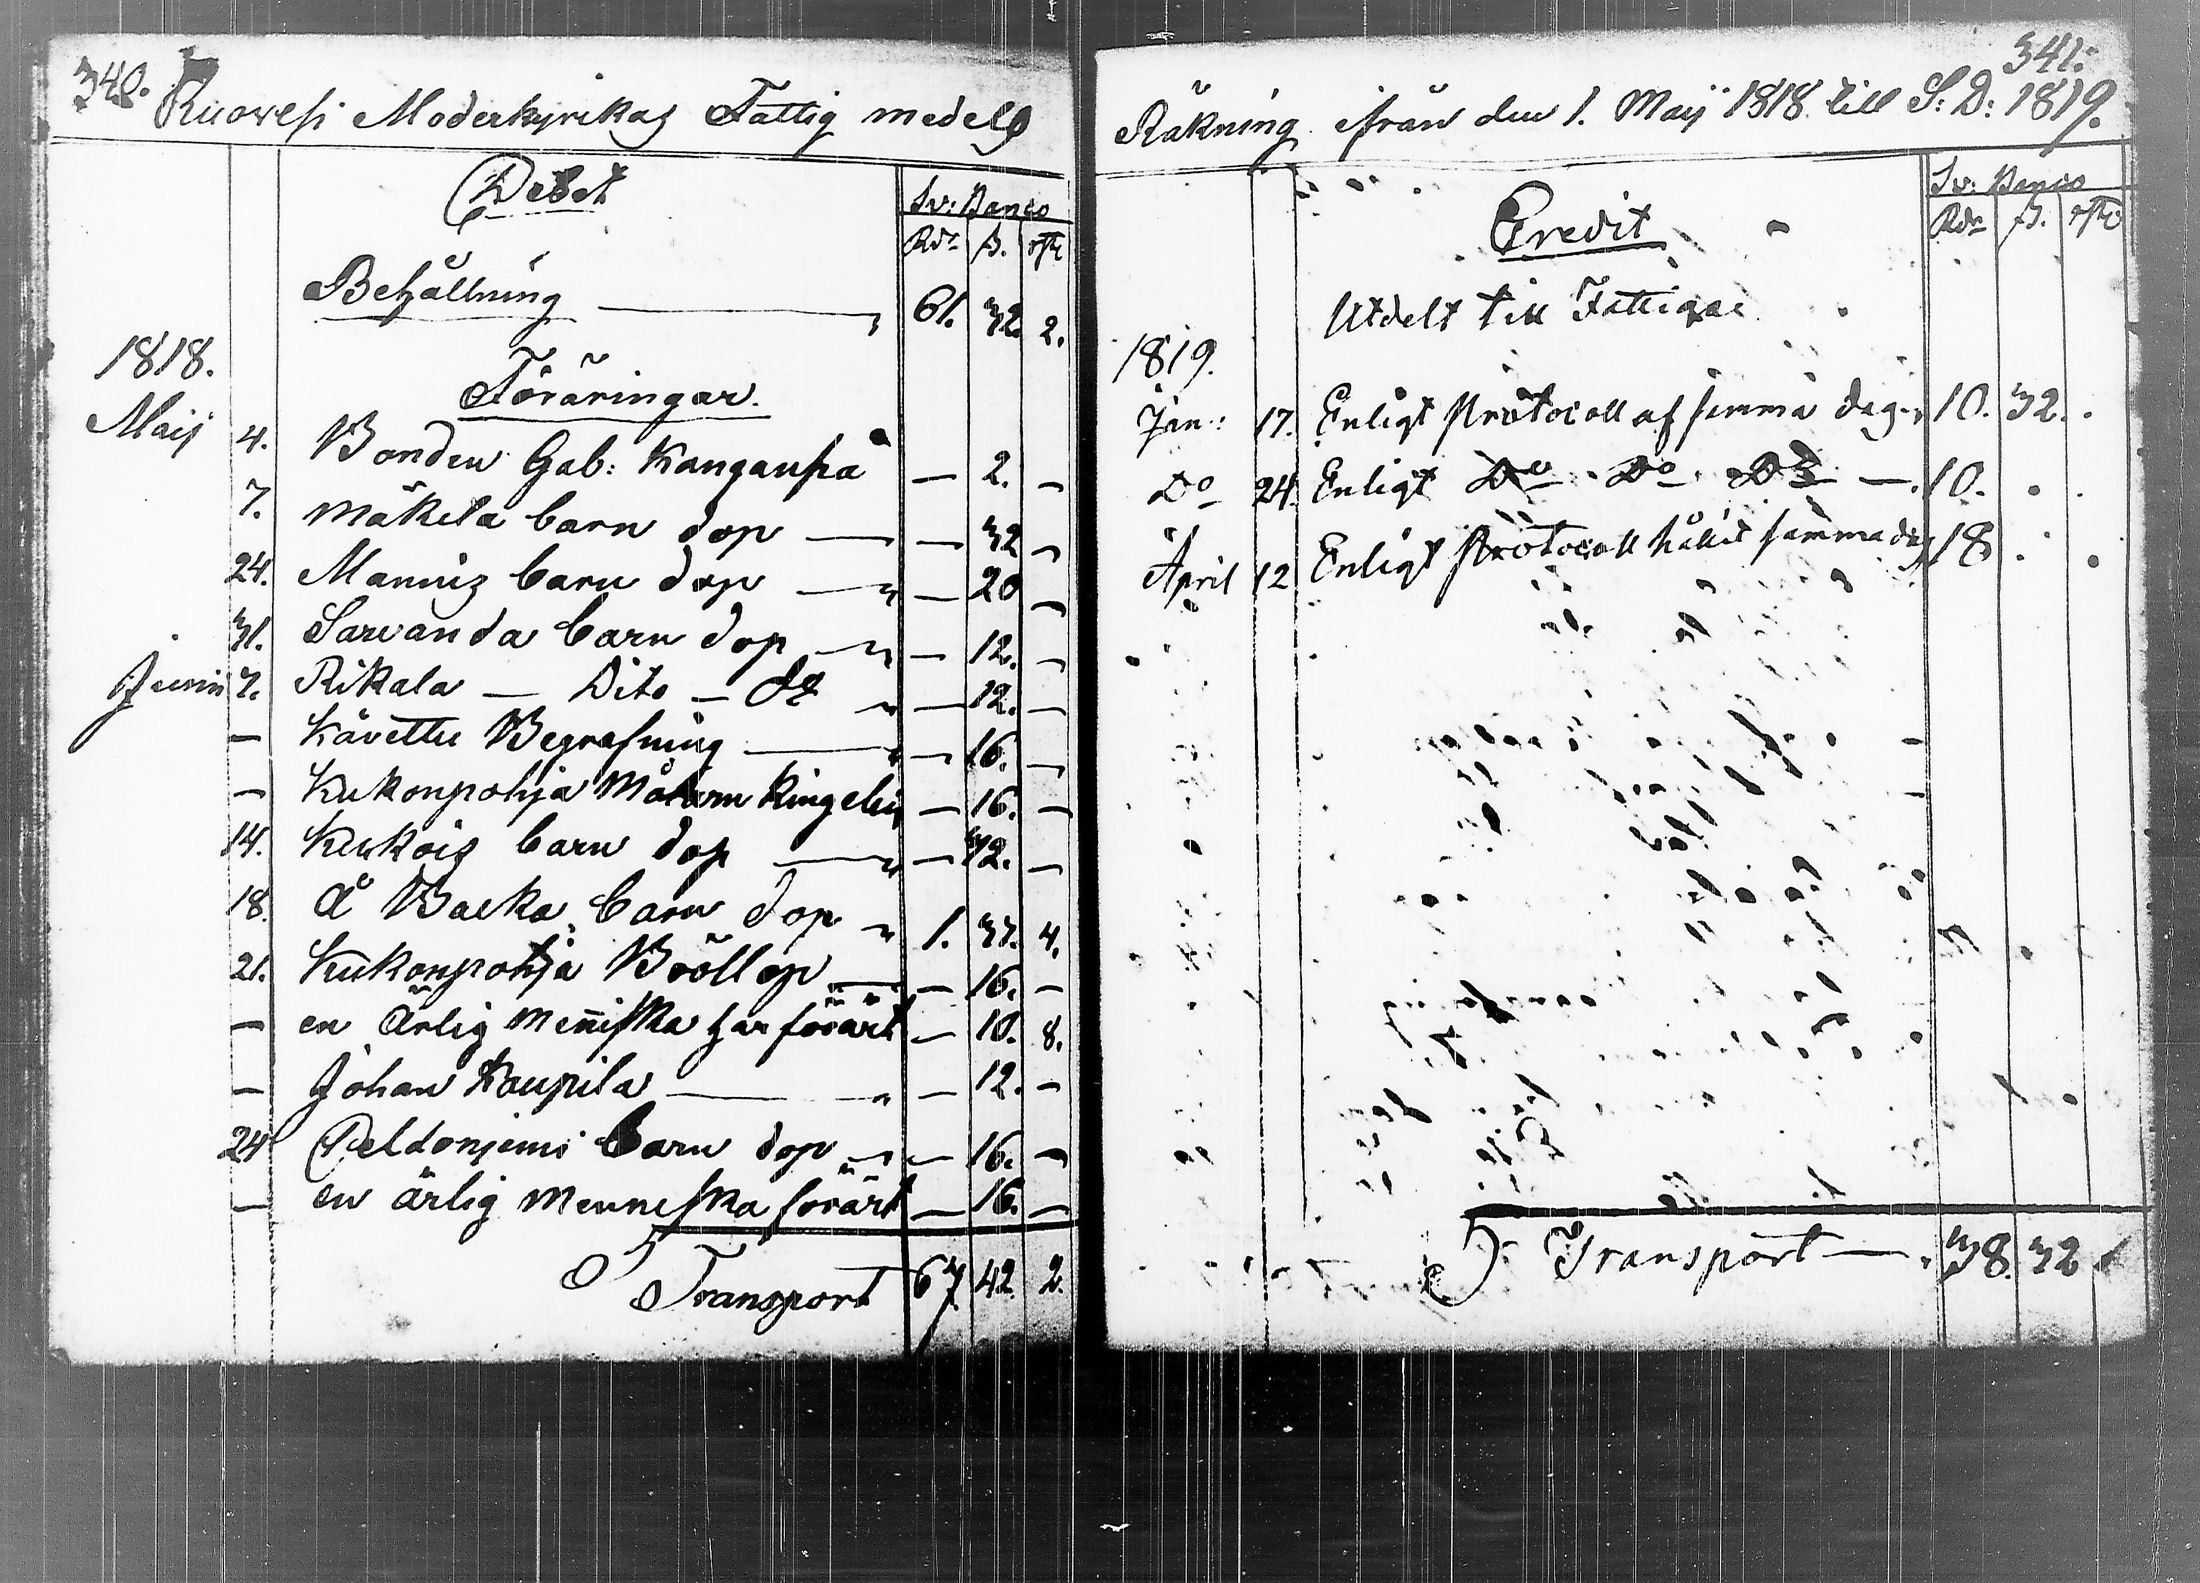 340.
Ruowesi Moderkyrikas Fattig medels
Debet
Sv: Banco
Rdr ß. rst
Behållning 61. 32 2.
1818.
Föräringar.
Maij 4. Bonden Gab: Kangaspä — 2. —
7. Mäkela barn dop — — 32 —
24. Mannis barn dop — — 20 —
31. Sarvanda barn dop — — 12. —
Junii 7. Rikala — Dito — do — 12. —
— Kåvettu Begrafning — — 16. —
— Kukonpohja — 16. —
14. Kukois barn dop — — 32. —
18. Å Backa barn dop 1. 37. 4.
21. Kukonpohja Bröllop — — 16. —
— en Ärlig Menniska har förärt — 10. 8.
— Johan Kaupila — — 12. —
24 Peldonjemi barn dop — — 16. —
— en ärlig Menneska förärt — 16. —
Transport 67. 42. 2.
341.
Räkning ifrån den 1. Maij 1818. till S: D: 1819.
Credit
Sv: Banco
Rdr ß. rst
Utdelt till Fattigae
1819.
Jan: 17. Enligt Protocoll af samma dag 10. 32. .
Do 24. Enligt Do Do Do — 10. . .
April 12 Enligt Protocoll hållit samma dag 18 . .
Transport — 38. 32